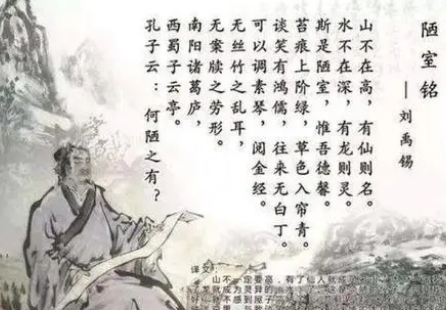 陋室铭
——刘禹锡
山不在高，有仙则名。
水不在深，有龙则灵。
斯是陋室，惟吾德馨。
苔痕上阶绿，草色入帘青。
谈笑有鸿儒，往来无白丁。
可以调素琴，阅金经。
无丝竹之乱耳，
无案牍之劳形。
南阳诸葛庐，
西蜀子云亭。
孔子云：何陋之有？
译文